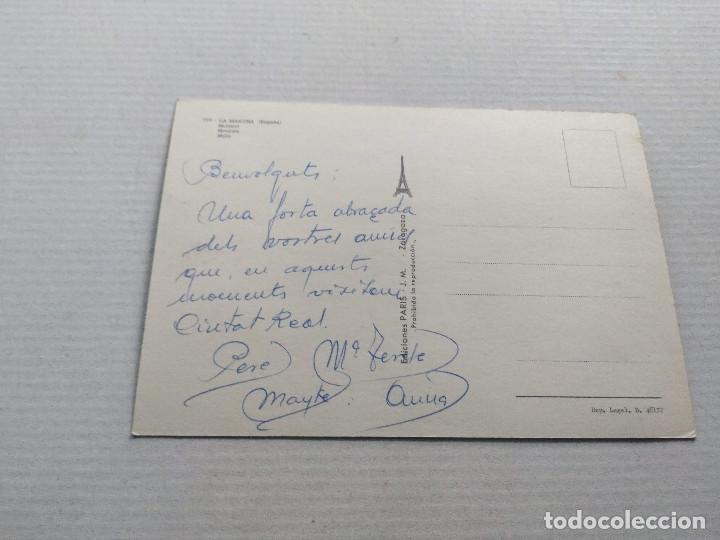 LA MANCHA (España)
Molinos
Moulins
Mills
Benvolguts:
Una forta abraçada
dels vostres amics
que, en aquests
moments visitem
Ciutat Real.
Pere Mª
Mayte. Anna
Ediciones PARIS J. M. - Zaragoza
Prohibida la reproducción
Dep. Legal, B.
todocoleccion.net